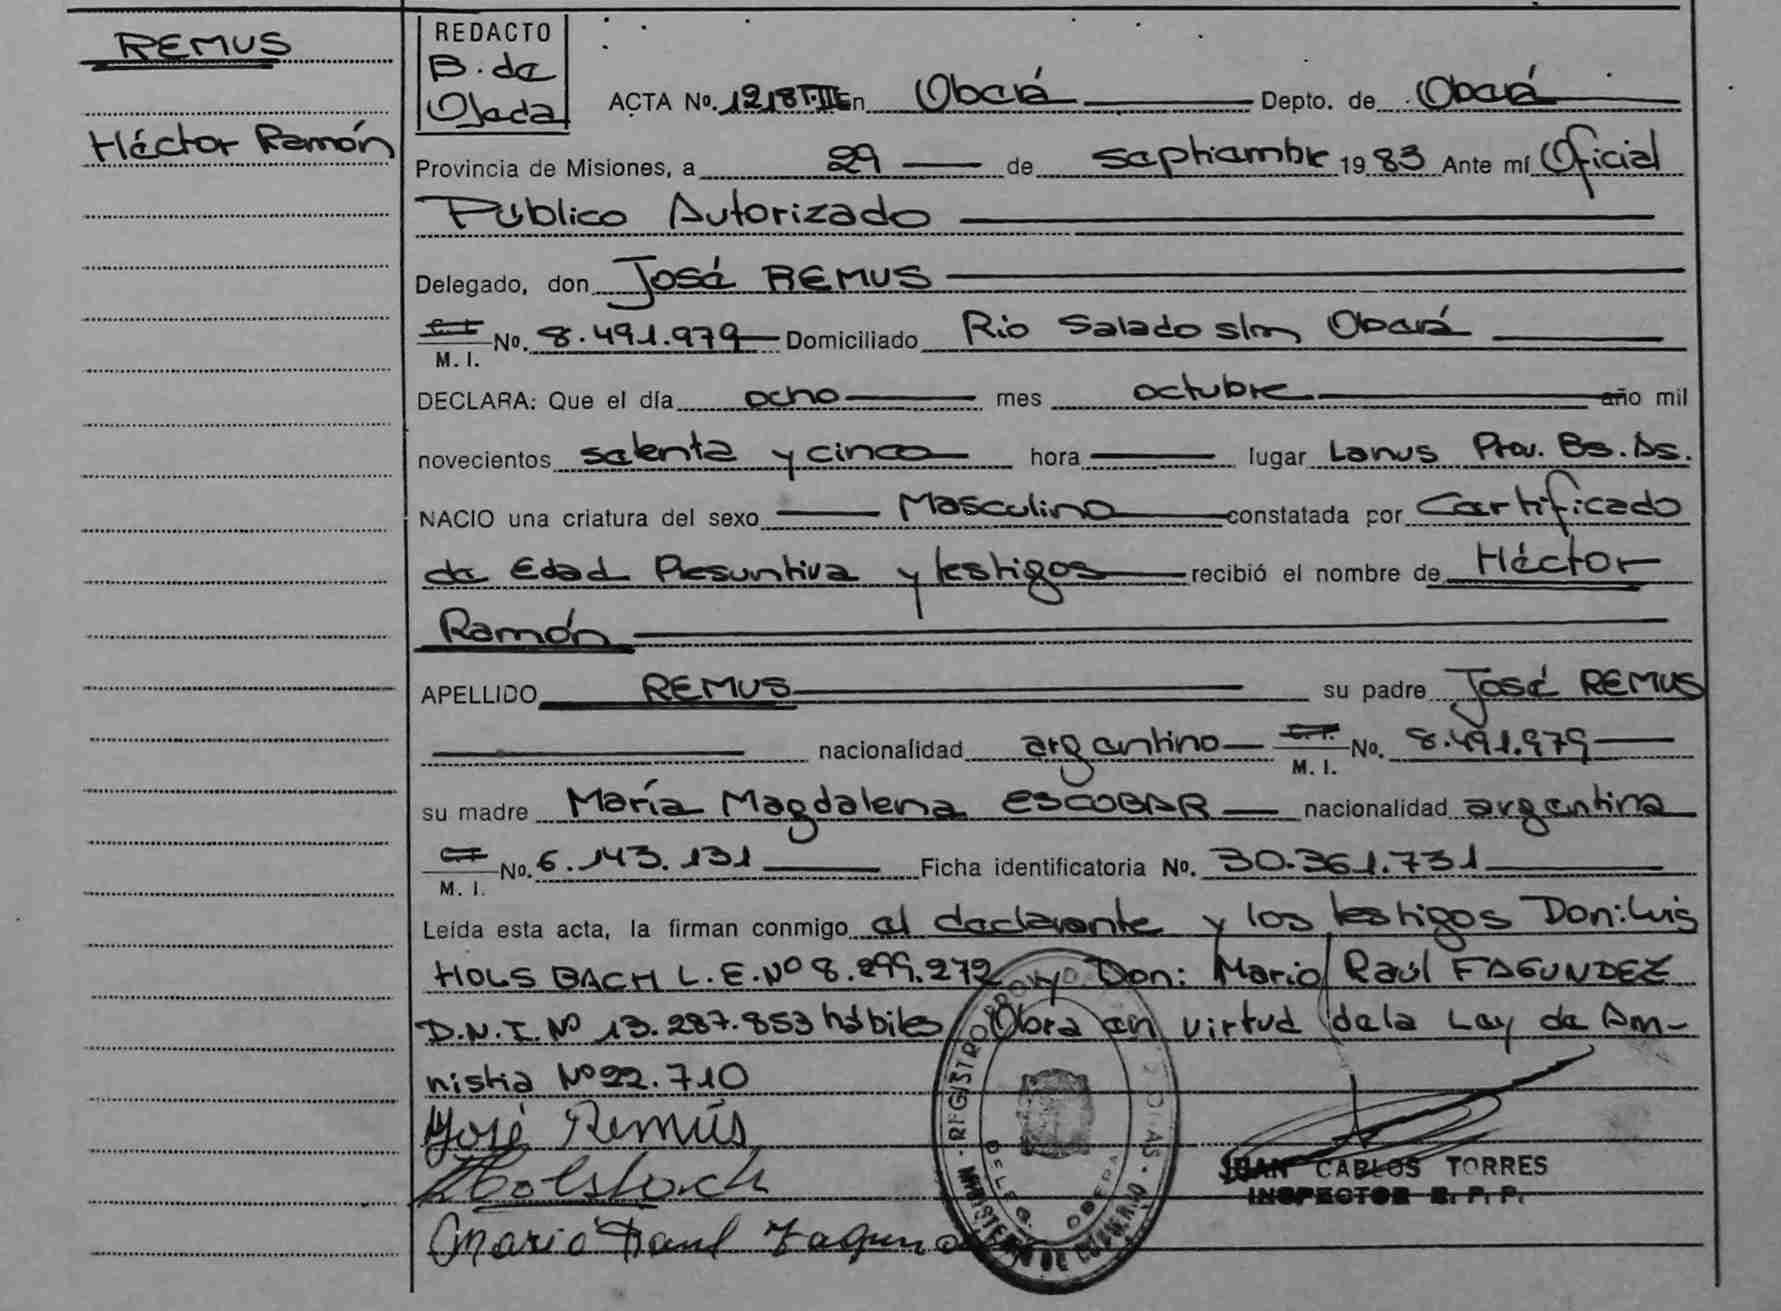 REMUS
Héctor Ramón
REDACTO
B. de
Ojeda
ACTA No. 1218 T.III En Oberá Depto. de Oberá
Provincia de Misiones, a 29 de septiembre 1983 Ante mí Oficial
Público Autorizado
Delegado, don José REMUS
C. I. No. 8.491.979 Domiciliado Río Salado s/n Oberá
M. I.
DECLARA: Que el día ocho mes octubre año mil
novecientos setenta y cinco hora lugar Lanus Prov. Bs. As.
NACIO una criatura del sexo Masculino constatada por Certificado
de Edad Presuntiva y testigos recibió el nombre de Héctor
Ramón
APELLIDO REMUS su padre José REMUS
nacionalidad argentino C. I. No. 8.491.979
M. I.
su madre María Magdalena ESCOBAR nacionalidad argentina
C. I. No. 6.143.131 Ficha identificatoria No. 30.361.731
M. I.
Leída esta acta, la firman conmigo el declarante y los testigos Don: Luis
HOLSBACH L.E. Nº 8.299.272 y Don: Mario Raúl FAGUNDEZ
D.N.I. Nº 13.287.853 hábiles Obra en virtud de la Ley de Am-
nistia Nº 22.710
José Remús
Holsbach
Mario Raul Fagun
REGISTRO PROV
DELEG. OBERA
MINISTERIO DE GOBIERNO
JUAN CARLOS TORRES
INSPECTOR R. P. P.